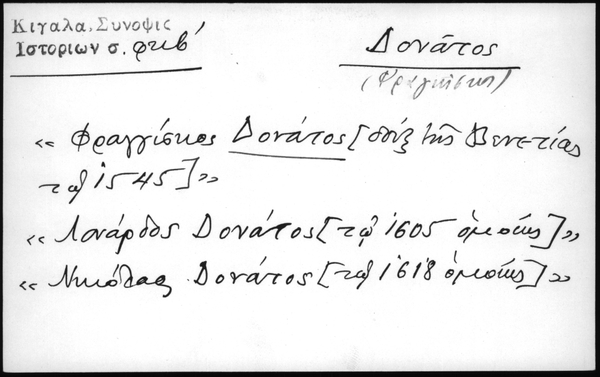 Κιγαλα, Συνοψις
Ιστοριων σ. φκβ'
Δονᾶτος
(Φραγκῖσκος)
« Φραγγίσκος Δονάτος [δόξ τῆς Βενετίας
τῷ 1545] »
« Λονάρδος Δονάτος [τῷ 1605 ὁμοίως] »
« Νικόλαος Δονάτος [τῷ 1618 ὁμοίως] »